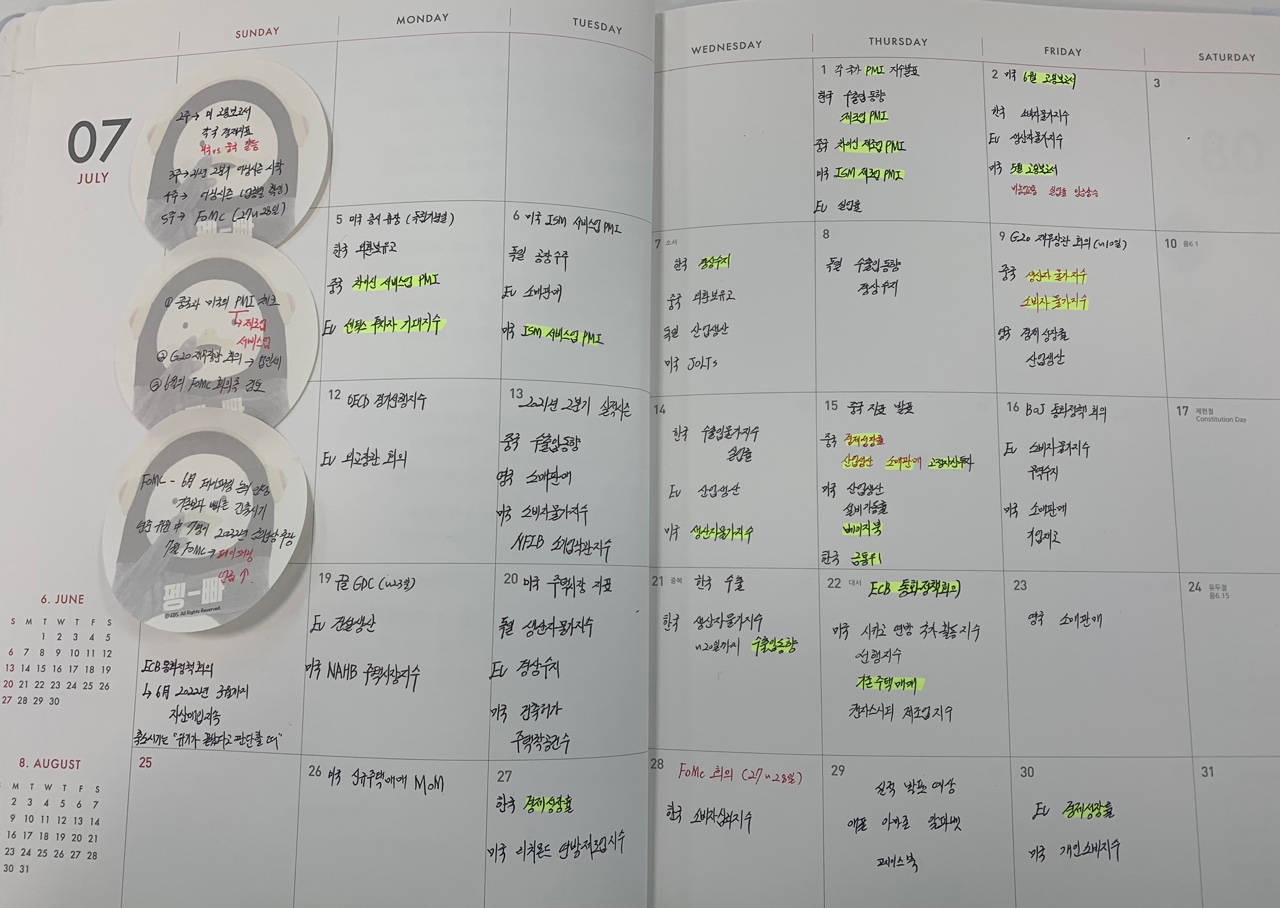 SUNDAY
MONDAY
TUESDAY
WEDNESDAY
THURSDAY
FRIDAY
SATURDAY
07
JULY
2주→ 미 고용보고서
각국 경제지표
미국 vs 중국 갈등
3주→ 21년 2분기 어닝시즌 시작
4주→ 어닝시즌 (업종별 확인)
5주→ FOMC (27~28일)
① 중국과 미국의 PMI 체크
↳ 제조업
서비스업
② G20 재무장관 회의 → 법인세
③ 6월의 FOMC 회의록 검토
FOMC - 6월 테이퍼링 논의
빠른 긴축시기
연준 위원 中 7명이 2022년 금리인상 주장
7월 FOMC → 테이퍼링
언급 ↑
펭-빠
© EBS. All Rights Reserved.
ECB 통화정책회의
↳ 6월 2022년 3월까지
자산매입지속
축소시기는 "위기가 끝났다고 판단할 때"
6. JUNE
S M T W T F S
1 2 3 4 5
6 7 8 9 10 11 12
13 14 15 16 17 18 19
20 21 22 23 24 25 26
27 28 29 30
8. AUGUST
M T W T F S
2 3 4 5 6 7
9 10 11 12 13 14
16 17 18 19 20 21
23 24 25 26 27 28
30 31
1 각 국가 PMI 지수발표
한국 수출입동향
제조업 PMI
중국 차이신 제조업 PMI
미국 ISM 제조업 PMI
EU 실업률
2 미국 6월 고용보고서
한국 소비자물가지수
EU 생산자물가지수
미국 5월 고용보고서
비농업고용 실업률 임금상승
3
5 미국 증시 휴장 (독립기념일)
한국 외환보유고
중국 차이신 서비스업 PMI
EU 센틱스 투자자 기대지수
6 미국 ISM 서비스업 PMI
독일 공장수주
EU 소매판매
미국 ISM 서비스업 PMI
7 소서
한국 경상수지
중국 외환보유고
독일 산업생산
미국 JOLTs
8
독일 수출입동향
경상수지
9 G20 재무장관 회의 (~10일)
중국 생산자 물가지수
소비자 물가지수
영국 경제 성장률
산업생산
10 음6.1
12 OECD 경기선행지수
EU 외교장관 회의
13 2021년 2분기 실적시즌
중국 수출입동향
영국 소매판매
미국 소비자물가지수
NFIB 소기업낙관지수
14
한국 수출입물가지수
실업률
EU 산업생산
미국 생산자물가지수
15 중국 지표 발표
중국 경제성장률
산업생산 소매판매 고정자산투자
미국 산업생산
설비가동률
베이지북
한국 금통위
16 BOJ 통화정책 회의
EU 소비자물가지수
무역수지
미국 소매판매
기업재고
17 제헌절
Constitution Day
19 구글 GDC (~23일)
EU 건설생산
미국 NAHB 주택시장지수
20 미국 주택시장 지표
독일 생산자물가지수
EU 경상수지
미국 건축허가
주택착공건수
21 중복 한국 수출
한국 생산자물가지수
~20일까지 수출입동향
22 대서 ECB 통화정책회의
미국 시카고 연방 국가활동지수
선행지수
기존주택매매
캔자스시티 제조업지수
23
영국 소매판매
24 유두절
음6.15
25
26 미국 신규주택매매 MoM
27
한국 경제성장률
미국 리치몬드 연방제조업지수
28 FOMC 회의 (27~28일)
한국 소비자심리지수
29 실적 발표 예상
애플 아마존 알파벳
페이스북
30
EU 경제성장률
미국 개인소비지수
31